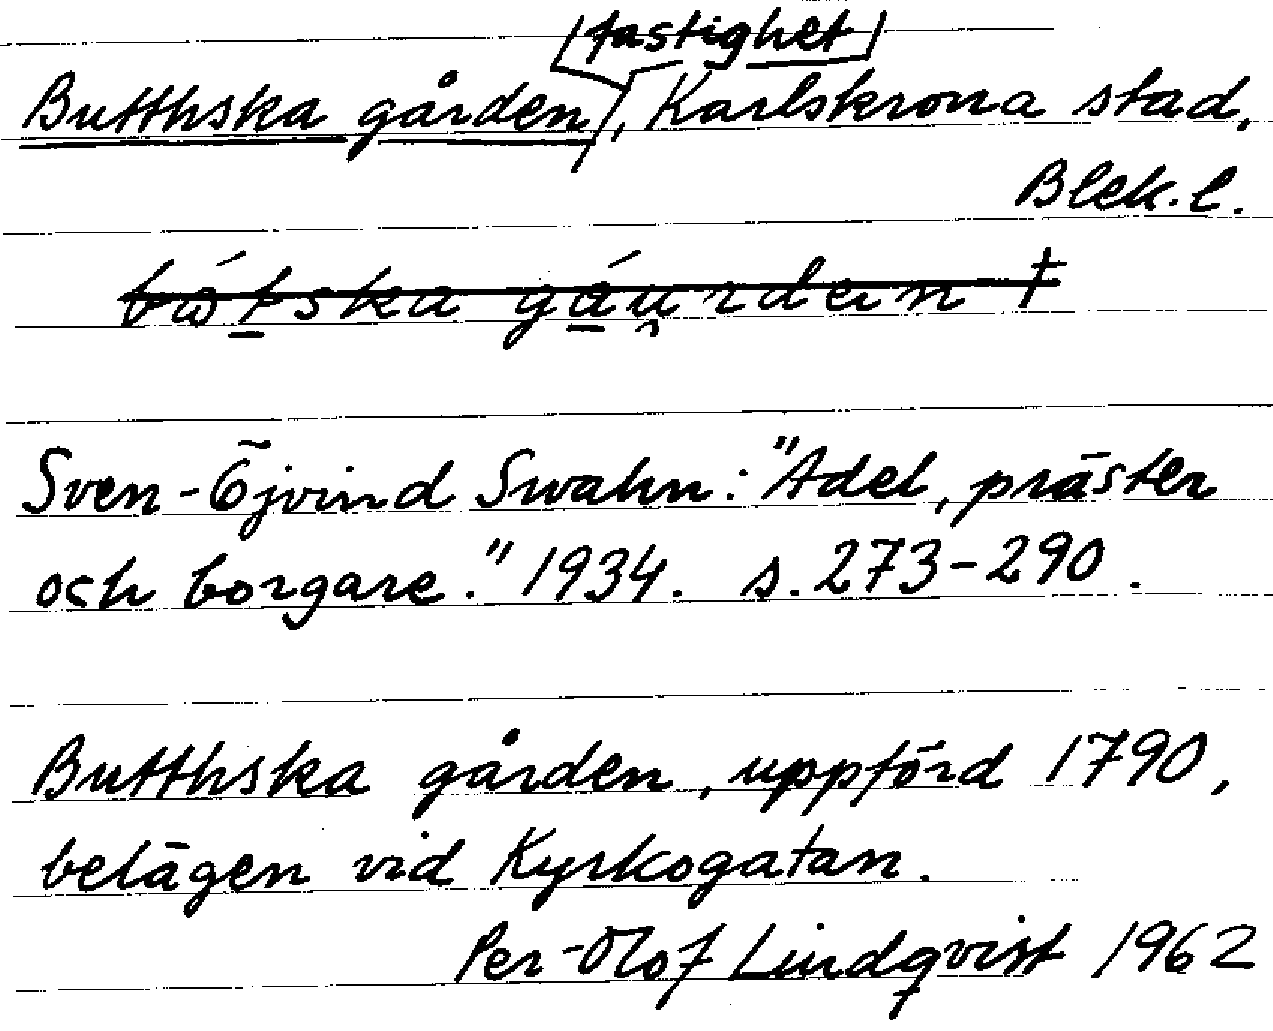 [fastighet]
Butthska gården, Karlskrona stad,
Blek. l.
Sven-Öjvind Swahn: "Adel, präster
och borgare." 1934. s. 273-290.
Butthska gården, uppförd 1790,
belägen vid Kyrkogatan.
Per-Olof Lindqvist 1962